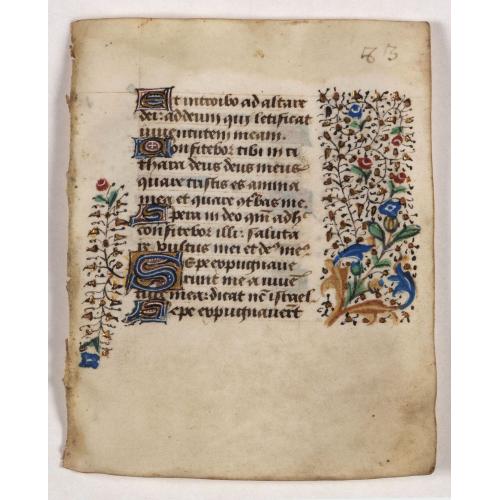 83
Et introibo ad altare
dei: ad deum qui letificat
iuventutem meam.
Confitebor tibi in ci
thara deus deus meus
quare tristis es anima
mea et quare 9turbas me.
Spera in deo qm̄ adh
confitebor illi: saluta
re vultus mei et de9 me9
Sepe expugnave
runt me a iuue
tute mea: dicat nc̄ israel
Sepe expugnavert